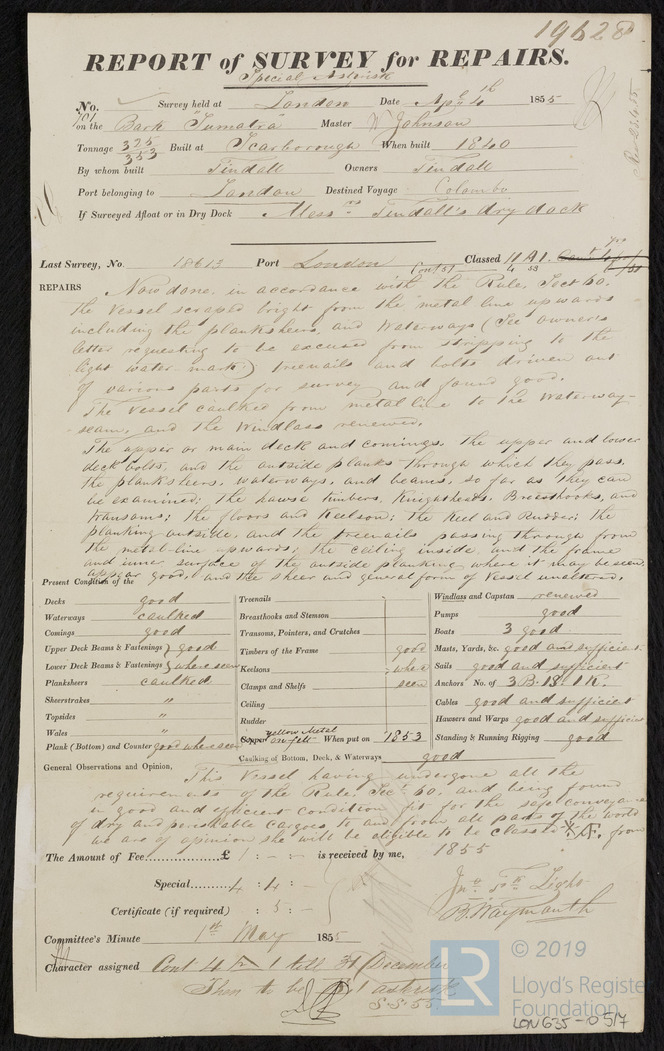 19628
REPORT of SURVEY for REPAIRS.
Special Asterisk
No. 701 Survey held at London Date Apl 4th 1855
on the Bark Sumatra Master W Johnson
Tonnage 325 353 Built at Scarborough When built 1840
By whom built Tindall Owners Tindall
Port belonging to London Destined Voyage Colombo
If Surveyed Afloat or in Dry Dock Messrs Tindall's dry dock
Last Survey, No. 18613 Port London Classed 11 A1.
REPAIRS Now done, in accordance with the Rule, Sect 60,
the Vessel scraped bright from the metal line upwards
including the planksheers, and Waterways (See owner's
letter requesting to be excused from stripping to the
light water mark) treenails and bolts driven out
of various parts for survey and found good.
The Vessel caulked from metal line to the Waterway-
seam, and the Windlass renewed.
The upper or main deck and comings, the upper and lower
deck bolts, and the outside planks through which they pass,
the planksheers, waterways, and beams, so far as they can
be examined; the hawse timbers, Knightheads, Breasthooks, and
transoms; the floors and Keelson; the Keel and Rudder; the
planking outside, and the treenails passing through from
the metal-line upwards; the ceiling inside and the frame
and inner surface of the outside planking where it may be seen
appear good, and the sheer and general form of Vessel unaltered.
Present Condition of the
Decks good
Waterways caulked
Comings good
Upper Deck Beams & Fastenings } good
Lower Deck Beams & Fastenings } where seen
Planksheers caulked
Sheerstrakes "
Topsides "
Wales "
Plank (Bottom) and Counter good where seen
Treenails
Breasthooks and Stemson
Transoms, Pointers, and Crutches
Timbers of the Frame good
Keelsons where
Clamps and Shelfs seen
Ceiling
Rudder
Copper yellow Metal on felt When put on 1853
Caulking of Bottom, Deck, & Waterways good
Windlass and Capstan renewed
Pumps good
Boats 3 good
Masts, Yards, &c. good and sufficient
Sails good and sufficient
Anchors No. of 3 B. 1 S. 1 K.
Cables good and sufficient
Hawsers and Warps good and sufficient
Standing & Running Rigging good
General Observations and Opinion, This Vessel having undergone all the
requirements of the Rule, Sect 60, and being found
in good and efficient condition fit for the safe conveyance
of dry and perishable cargoes to and from all parts of the world
we are of opinion she will be eligible to be classed from
1855
The Amount of Fee £ 1 : - : - is received by me,
Special 4 : 4 : -
Certificate (if required) : 5 : -
B. Waymouth
Committee's Minute 1st May 1855
Character assigned Cont 4 1 till 31 December
Then to be 1 asterisk
S.S. 55.
LR
© 2019
Lloyd's Register
Foundation
LON635-0517